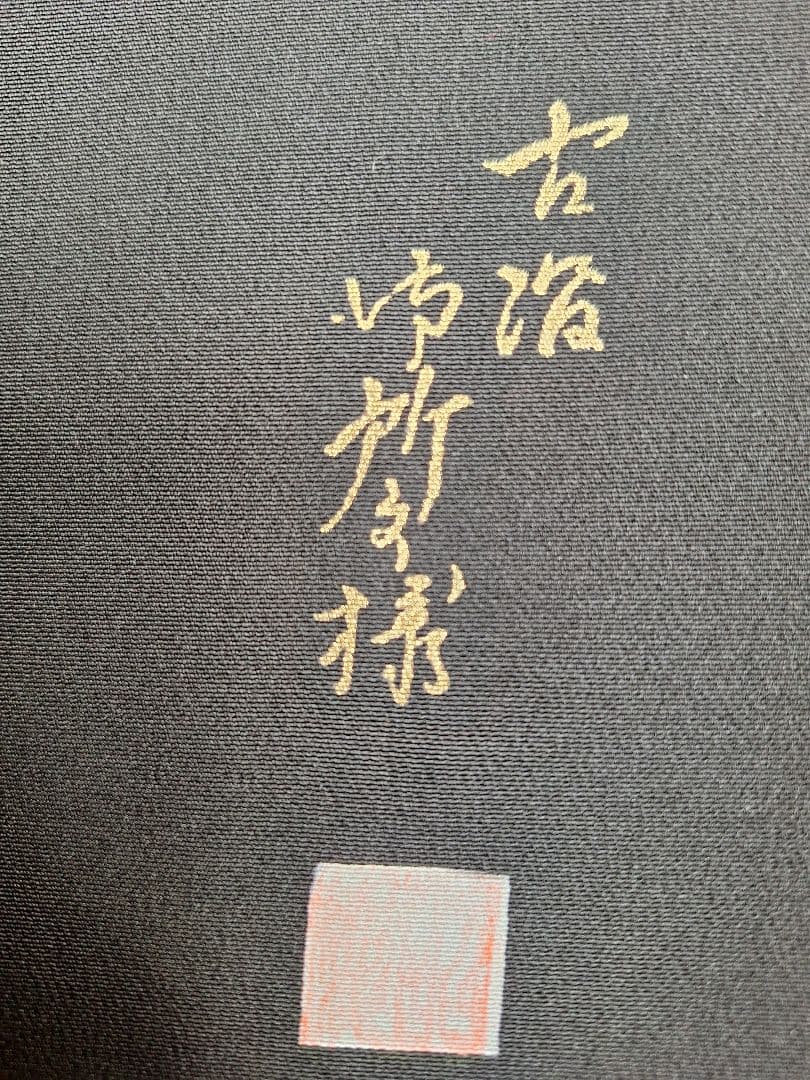 古
御所文様